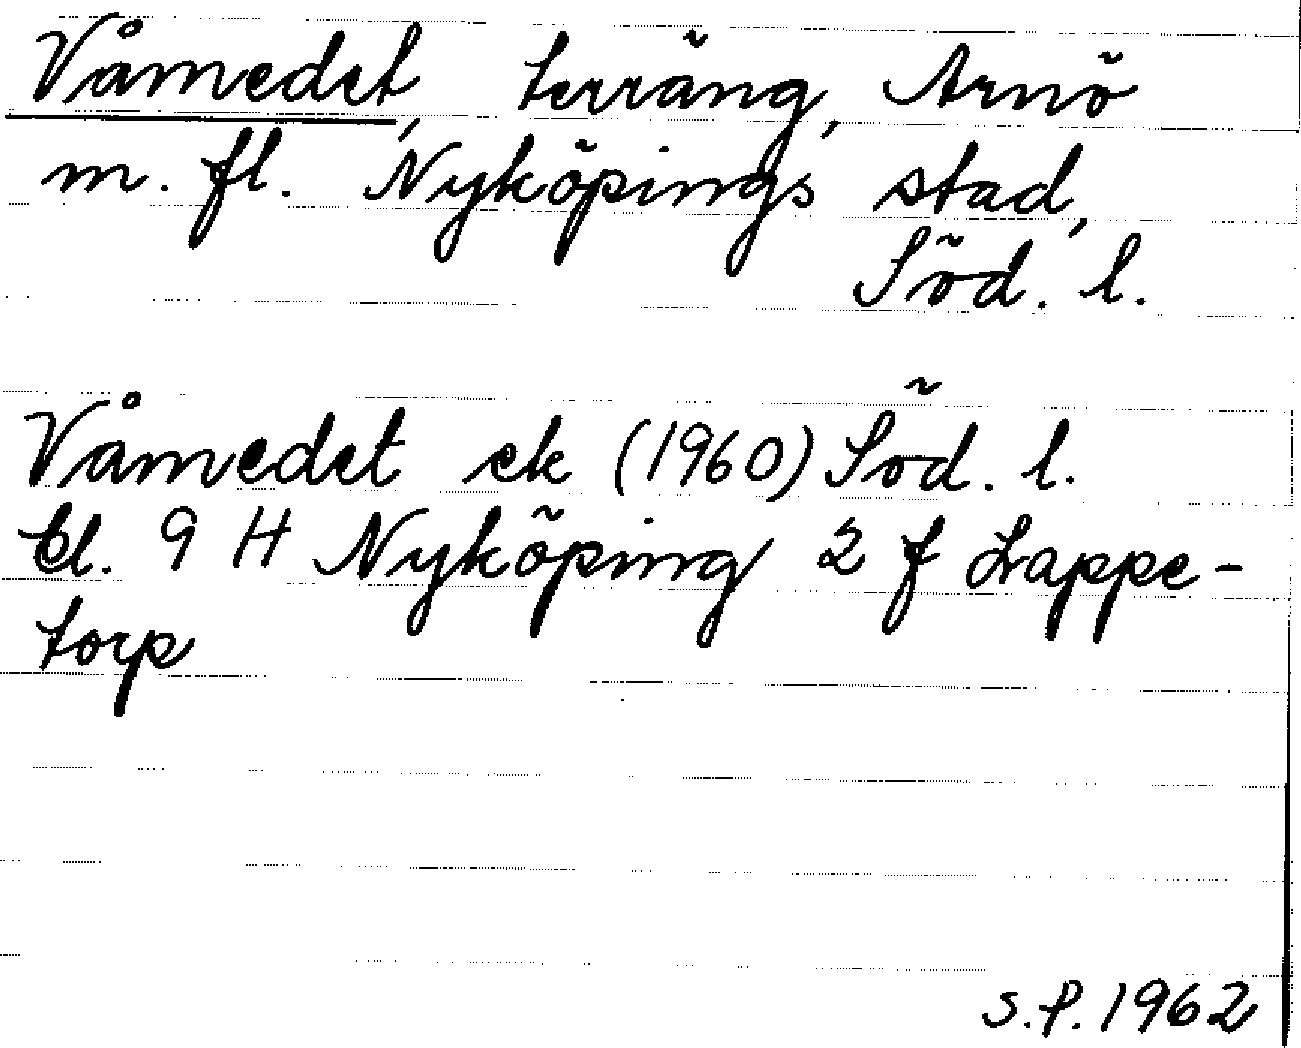 Våmedet, terräng, Arnö
m. fl. Nyköpings stad,
Söd. l.
Våmedet ek (1960) Söd. l.
bl. 9 H Nyköping 2 f Lappe-
torp
S.P. 1962